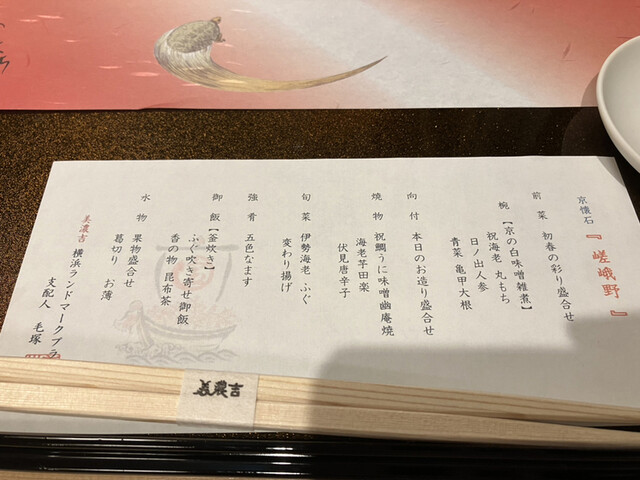 京懐石 『嵯峨野』
前菜 初春の彩り盛合せ
椀 【京の白味噌雑煮】
祝海老 丸もち
日ノ出人参
青菜 亀甲大根
向付 本日のお造り盛合せ
焼物 祝鯛うに味噌幽庵焼
海老芋田楽
伏見唐辛子
旬菜 伊勢海老 ふぐ
変わり揚げ
強肴 五色なます
御飯 【釜炊き】
ふぐ吹き寄せ御飯
香の物 昆布茶
水物 果物盛合せ
葛切り お薄
美濃吉 横浜ランドマークプラ
支配人 毛塚
美濃吉